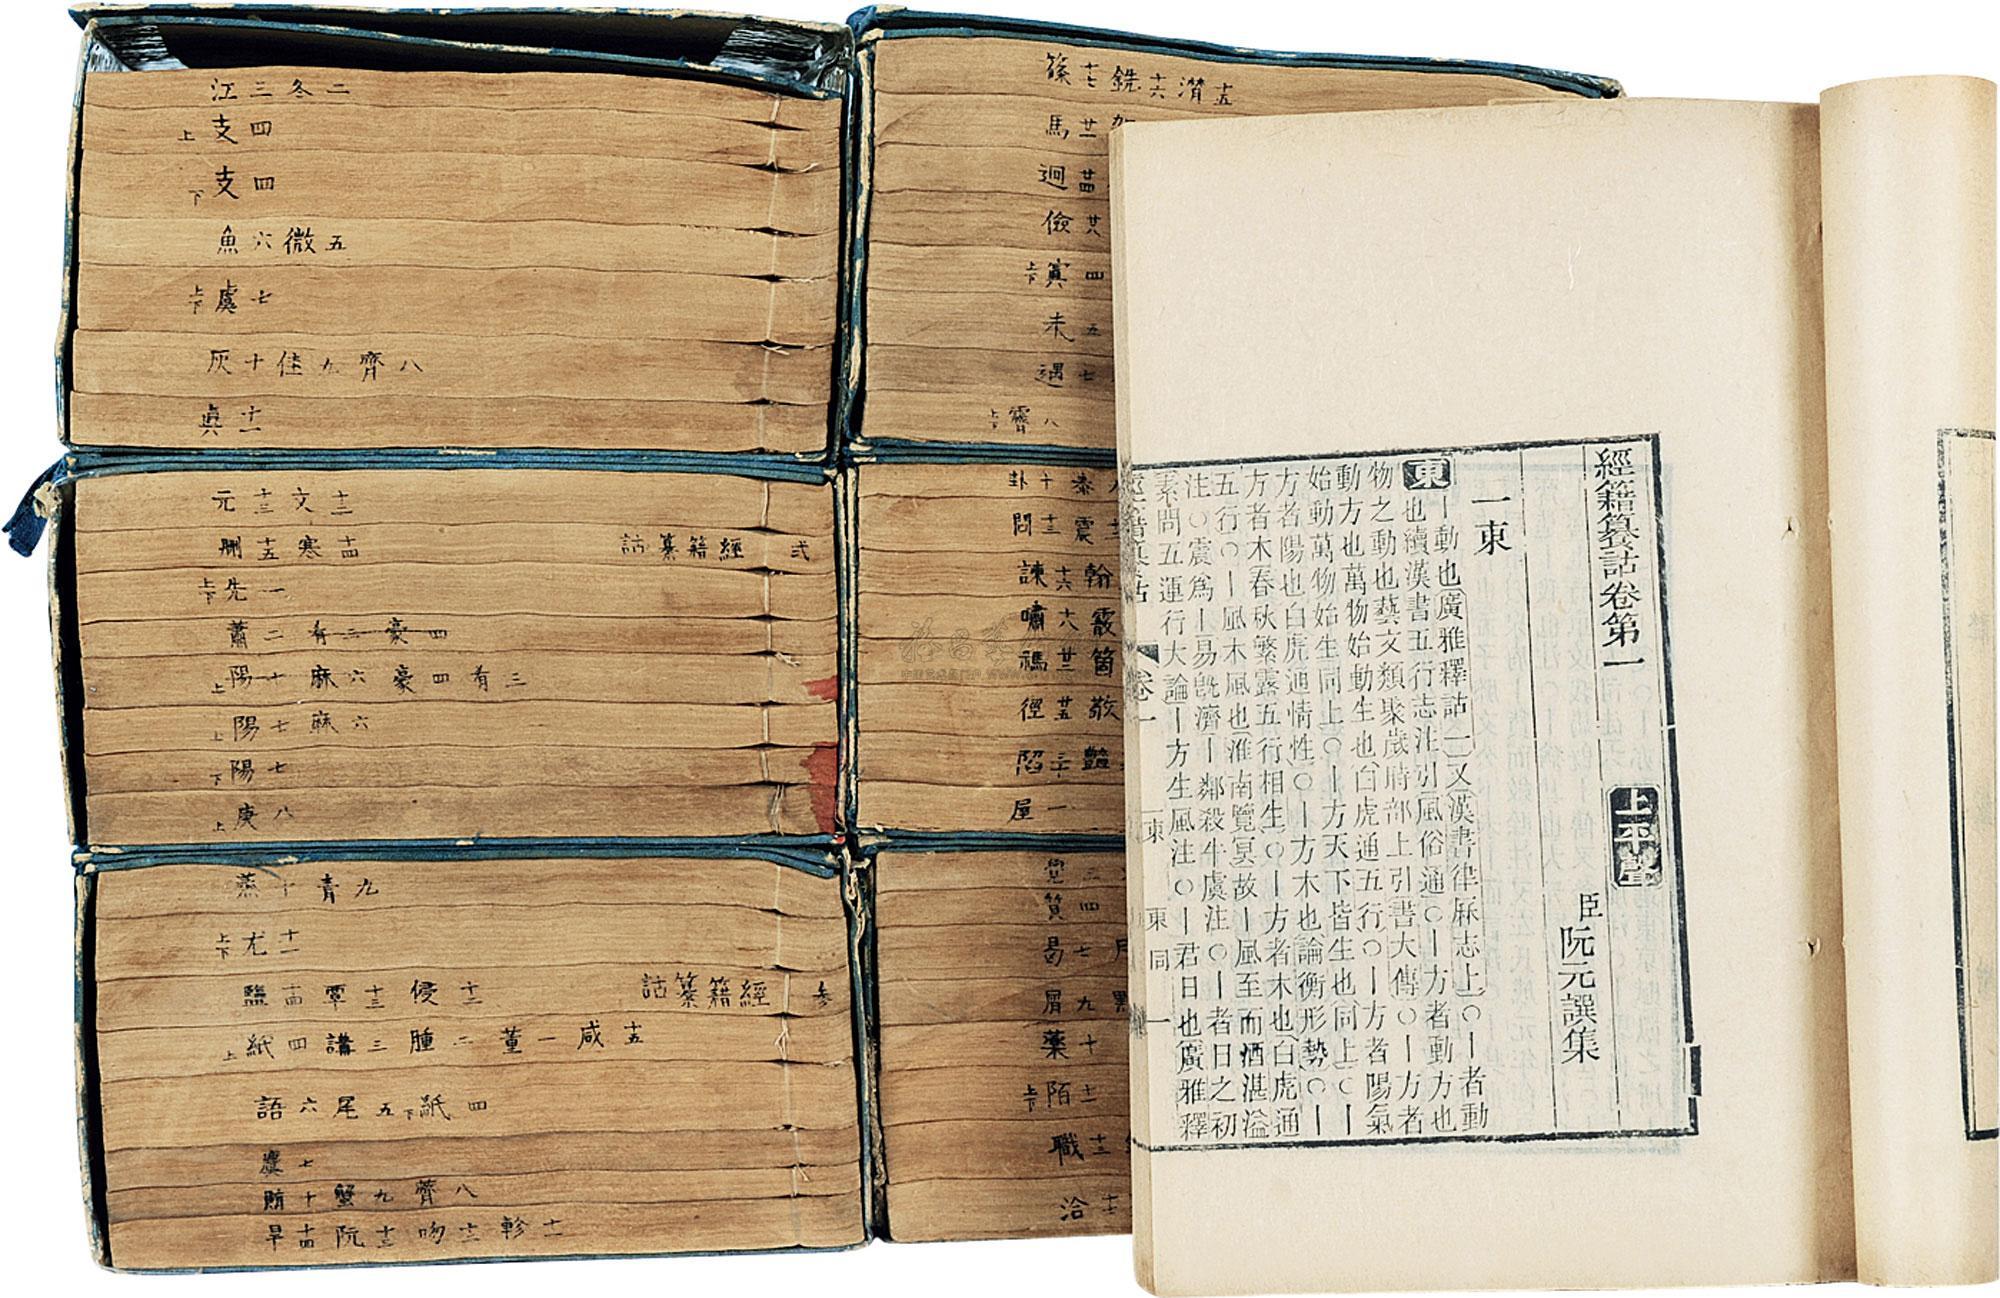 二冬三江
四支上
四支下
五微六魚
七虞上下
八齊九佳十灰
十一真
十二文十三元
十四寒十五刪
弍 經籍纂詁
一先上下
二蕭三肴四豪
三肴四豪六麻
六麻七陽上
七陽下
八庚上
九青十蒸
十一尤上下
十二侵十三覃十四鹽
參 經籍纂詁
十五咸一董二腫三講四紙上
四紙下五尾六語
七麌
八薺九蟹十賄
十一軫十二吻十三阮十四旱
十五潸十六銑十七篠
廿一馬
廿四迥
廿八儉
四寘上下
五未
七遇
八霽上下
泰十卦
十二震十三問
翰十六諫
霰十八嘯
箇廿二禡
敬廿五徑
豔三十陷
一屋
三覺
四質
七曷
九屑
十藥
十一陌上下
十三職
十七洽
經籍纂詁卷第一
上平聲
臣阮元譔集
一東
東丨動也廣雅釋詁一又漢書律厤志上○丨者動
也續漢書五行志注引風俗通○丨方者動方也
物之動也藝文類聚歲時部上引書大傳○丨方者
動方也萬物始動生也白虎通五行○丨方者陽氣
始動萬物始生同上○丨方天下皆生也同上○丨
方者陽也白虎通情性○丨方木也論衡形勢○丨
方者木春秋繁露五行相生○丨方者木也白虎通
五行○丨風木風也淮南覽冥故丨風至而酒湛溢
注○震爲丨易旣濟丨鄰殺牛虞注○丨者日之初
素問五運行大論丨方生風注○丨君日也廣雅釋
經籍纂詁 卷一 一東 東 同 一